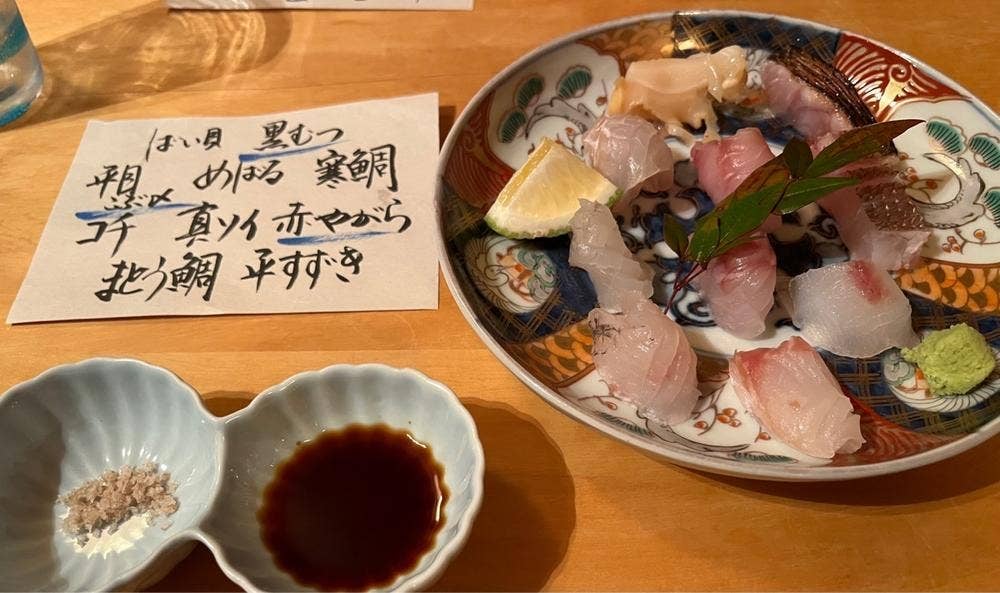 ばい貝 黒むつ
平目 めばる 寒鯛
こぶ〆
コチ 真ソイ 赤やがら
まとう鯛 平すずき